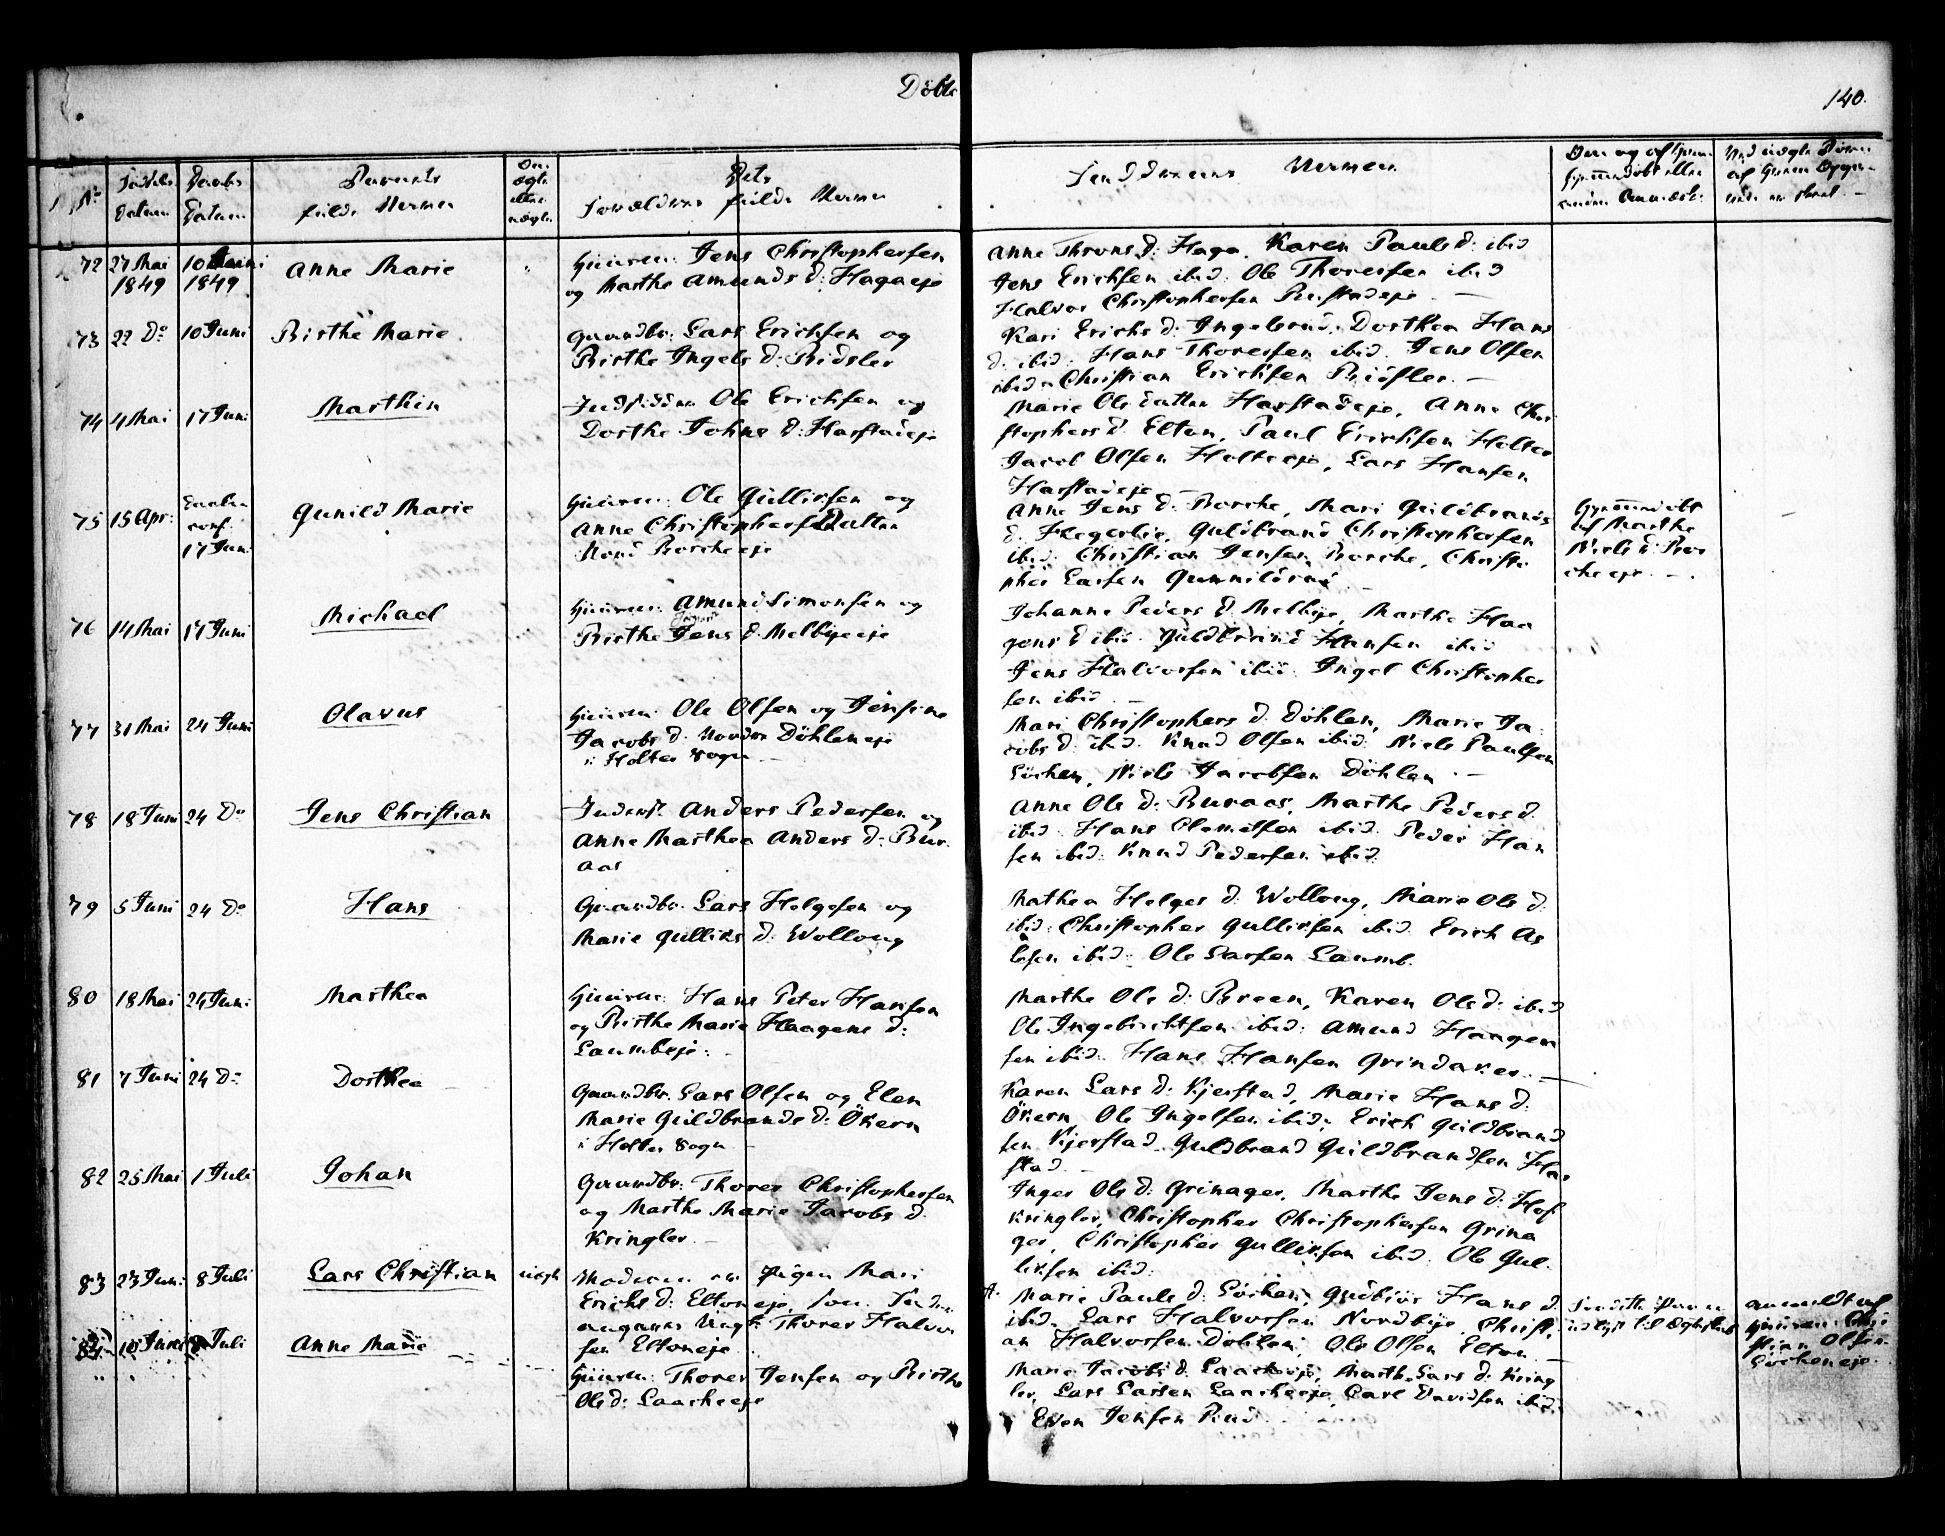 Döbte
140.
No
Födsels Datum
Daabs Datum
Barnets fulde Navn
Om ægte eller uægte
Dets Forældres fulde Navne
Faddernes Navne
72 27 Mai 1849 10 Juni 1849 Anne Marie
Huusm: Jens Christophersen
og Marthe Amunds d: Hagaeje
Anne Throns d: Haga, Karen Pauls d: ibid
Jens Erichsen ibid: Ole Thoresen ibid
Halvor Christophersen
73 22 Do 10 Juni Birthe Marie
Gaardbr: Lars Erichsen og
Birthe Ingels d: Ridsler
Kari Erichs d: Ingelsrud, Dorthea Hans
d: ibid. Hans Thoresen ibid. Jens Olsen
ibid. Christian Erichsen
74 4 Mai 17 Juni Marthin
Inds Ole Erichsen og
Dorthe Johns d: Harstadeje
Marie Ole datter Harstadeje, Anne Chri
stophers d. Elton, Paul Erichsen Holter
Jacob Olsen Holtereje, Lars Hansen
Harstadeje
75 15 Apr: 17 Juni Gunild Marie
Huusm: Ole Gulliksen og
Anne Christophersdatter
Nord Borcheeje
Anne Jens d: Borche, Mari Guldbrands
d. Hegerlie, Guldbrand Christophersen
ibid: Christian Jensen Borche, Christo
pher Larsen
Hjemmedöbt
af Marthe
Niels d: Bor
cheeje
76 14 Mai 17 Juni Michael
Huusm: Amund Simonsen og
Birthe Jens d. Melbyeeje
Johanne Peders d. Melbye, Marthe Haa
gens d ibid. Guldbrand Hansen ibid
Jens Halvorsen ibid. Ingel Christopher
sen ibid
77 31 Mai 24 Juni Olavus
Huusm: Ole Olsen og Jensine
Jacobs d. Nordre Döhleneje
i Holter Sogn
Mari Christophers d. Döhlen, Marie Ja
cobs d: ibid. Knud Olsen ibid. Niels Paulsen
Löchen, Niels Jacobsen Döhlen
78 18 Juni 24 Do Jens Christian
Inderst Anders Pedersen og
Anne Marthea Anders d: Bur
aas
Anne Ole d: Buraas, Marthe Peders d
ibid. Hans Clemetsen ibid. Peder Han
sen ibid: Knud Pedersen ibid
79 5 Juni 24 Do Hans
Gaardbr. Lars Helgesen og
Marie Gulliks d: Wolloug
Mathea Helges d: Wolloug, Marie Ole d:
ibid. Christopher Gulliksen ibid. Erich As
lesen ibid: Ole Larsen Laumb.
80 18 Mai 24 Juni Marthea
Huusm: Hans Peter Hansen
og Birthe Marie Haagens d:
Laumbeje.
Marthe Ole d: Breen, Karen Ole d: ibid
Ole Ingebrichtsen ibid: Amund Haagen
sen ibid. Hans Hansen Grindaker.
81 7 Juni 24 Do Dorthea
Gaardbr. Lars Olsen og Elen
Marie Guldbrands d: Ökern
i Holter Sogn
Karen Lars d: Kjerstad, Marie Hans d:
Ökern Ole Ingelsen ibid; Erich Guldbrand
sen Kjerstad. Guldbrand Guldbrandsen Har
stad.
82 25 Mai 1 Juli Johan
Gaardbr: Thorer Christophersen
og Marthe Marie Jacobs d.
Kringler.
Inger Ole d: Grinager, Marthe Jens d: Hof
Kringler, Christopher Christophersen Grina
ger, Christopher Gulliksen ibid. Ole Gul
liksen ibid.
83 23 Juni 8 Juli Lars Christian uægte
Moderen er Pigen Mari
Erichs d: Eltoneje,
Ungk: Thorer Halvor
sen Eltoneje
Marie Pauls d: Löchen, Gudbiör Hans d.
ibid. Lars Halvorsen Nordbye Christi
an Halvorsen Döhlen, Ole Olsen Elton
anmeldt af
Huusm: Chri
stian Olsen
Löcheneje
84 10 Juni 8 Juli Anne Marie
Huusm: Thorer Jensen og Birthe
Ole d: Laacheeje
Marie Jacobs d: Laacheeje, Marthe Lars d: Kring
ler, Lars Larsen Laacheeje, Carl Davidsen ibid
Even Jensen Rud